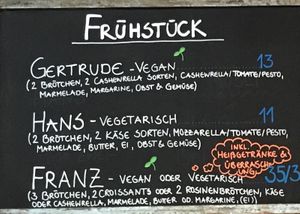 FRÜHSTÜCK
GERTRUDE - VEGAN 13
(2 BRÖTCHEN, 2 CASHEWRELLA SORTEN, CASHEWRELLA/TOMATE/PESTO,
MARMELADE, MARGARINE, OBST & GEMÜSE)
HANS - VEGETARISCH 11
(2 BRÖTCHEN, 2 KÄSE SORTEN, MOZZARELLA/TOMATE/PESTO,
MARMELADE, BUTTER, EI, OBST & GEMÜSE)
INKL
HEIẞGETRÄNKE &
ÜBERRASCH
UNG
FRANZ - VEGAN ODER VEGETARISCH 35/3
(3 BRÖTCHEN, 2 CROISSANTS ODER 2 ROSINENBRÖTCHEN, KÄSE
ODER CASHEWRELLA, MARMELADE, BUTTER OD. MARGARINE, (EI))